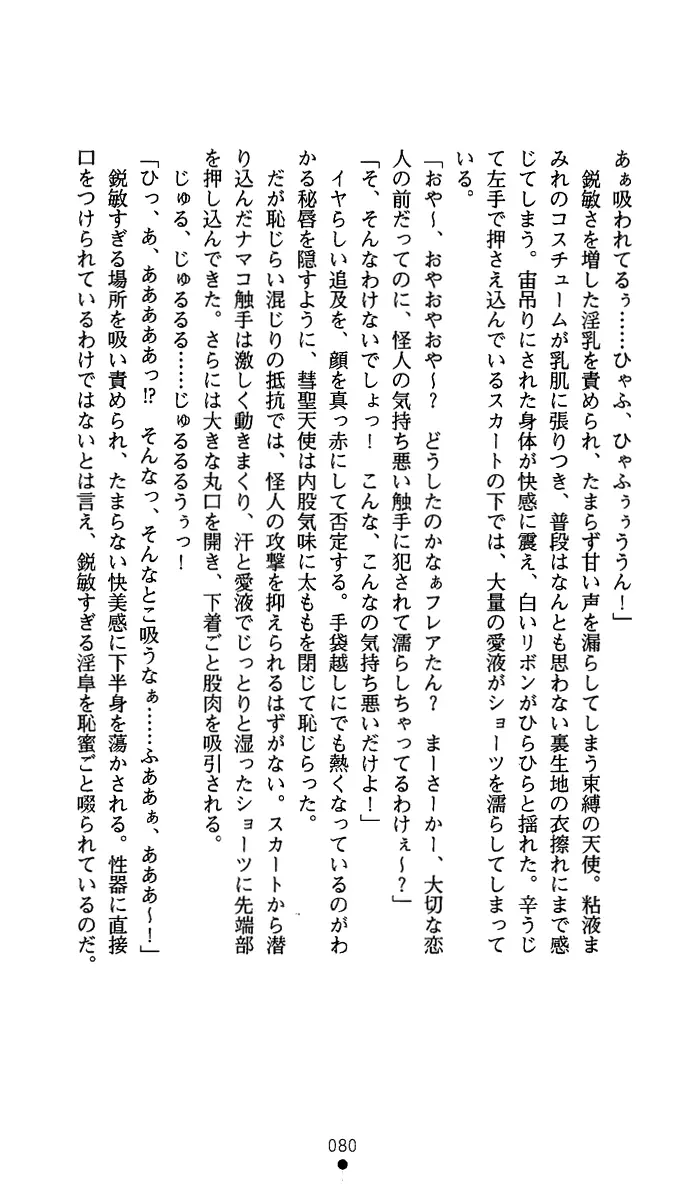 あぁ吸われてるぅ……ひゃふ、ひゃふぅぅううん！」
　鋭敏さを増した淫乳を責められ、たまらず甘い声を漏らしてしまう束縛の天使。粘液ま
みれのコスチュームが乳肌に張りつき、普段はなんとも思わない裏生地の衣擦れにまで感
じてしまう。宙吊りにされた身体が快感に震え、白いリボンがひらひらと揺れた。辛うじ
て左手で押さえ込んでいるスカートの下では、大量の愛液がショーツを濡らしてしまって
いる。
「おや～、おやおやおや～？　どうしたのかなぁフレアたん？　まーさーかー、大切な恋
人の前だってのに、怪人の気持ち悪い触手に犯されて濡らしちゃってるわけぇ～？」
「そ、そんなわけないでしょっ！　こんな、こんなの気持ち悪いだけよ！」
　イヤらしい追及を、顔を真っ赤にして否定する。手袋越しにでも熱くなっているのがわ
かる秘唇を隠すように、彗聖天使は内股気味に太ももを閉じて恥じらった。
　だが恥じらい混じりの抵抗では、怪人の攻撃を抑えられるはずがない。スカートから潜
り込んだナマコ触手は激しく動きまくり、汗と愛液でじっとりと湿ったショーツに先端部
を押し込んできた。さらには大きな丸口を開き、下着ごと股肉を吸引される。
　じゅる、じゅるるる……じゅるるるうぅっ！
「ひっ、あ、あああああっ!?　そんなっ、そんなとこ吸うなぁ……ふああぁ、あああ～！」
　鋭敏すぎる場所を吸い責められ、たまらない快美感に下半身を蕩かされる。性器に直接
口をつけられているわけではないとは言え、鋭敏すぎる淫阜を恥蜜ごと啜られているのだ。
080